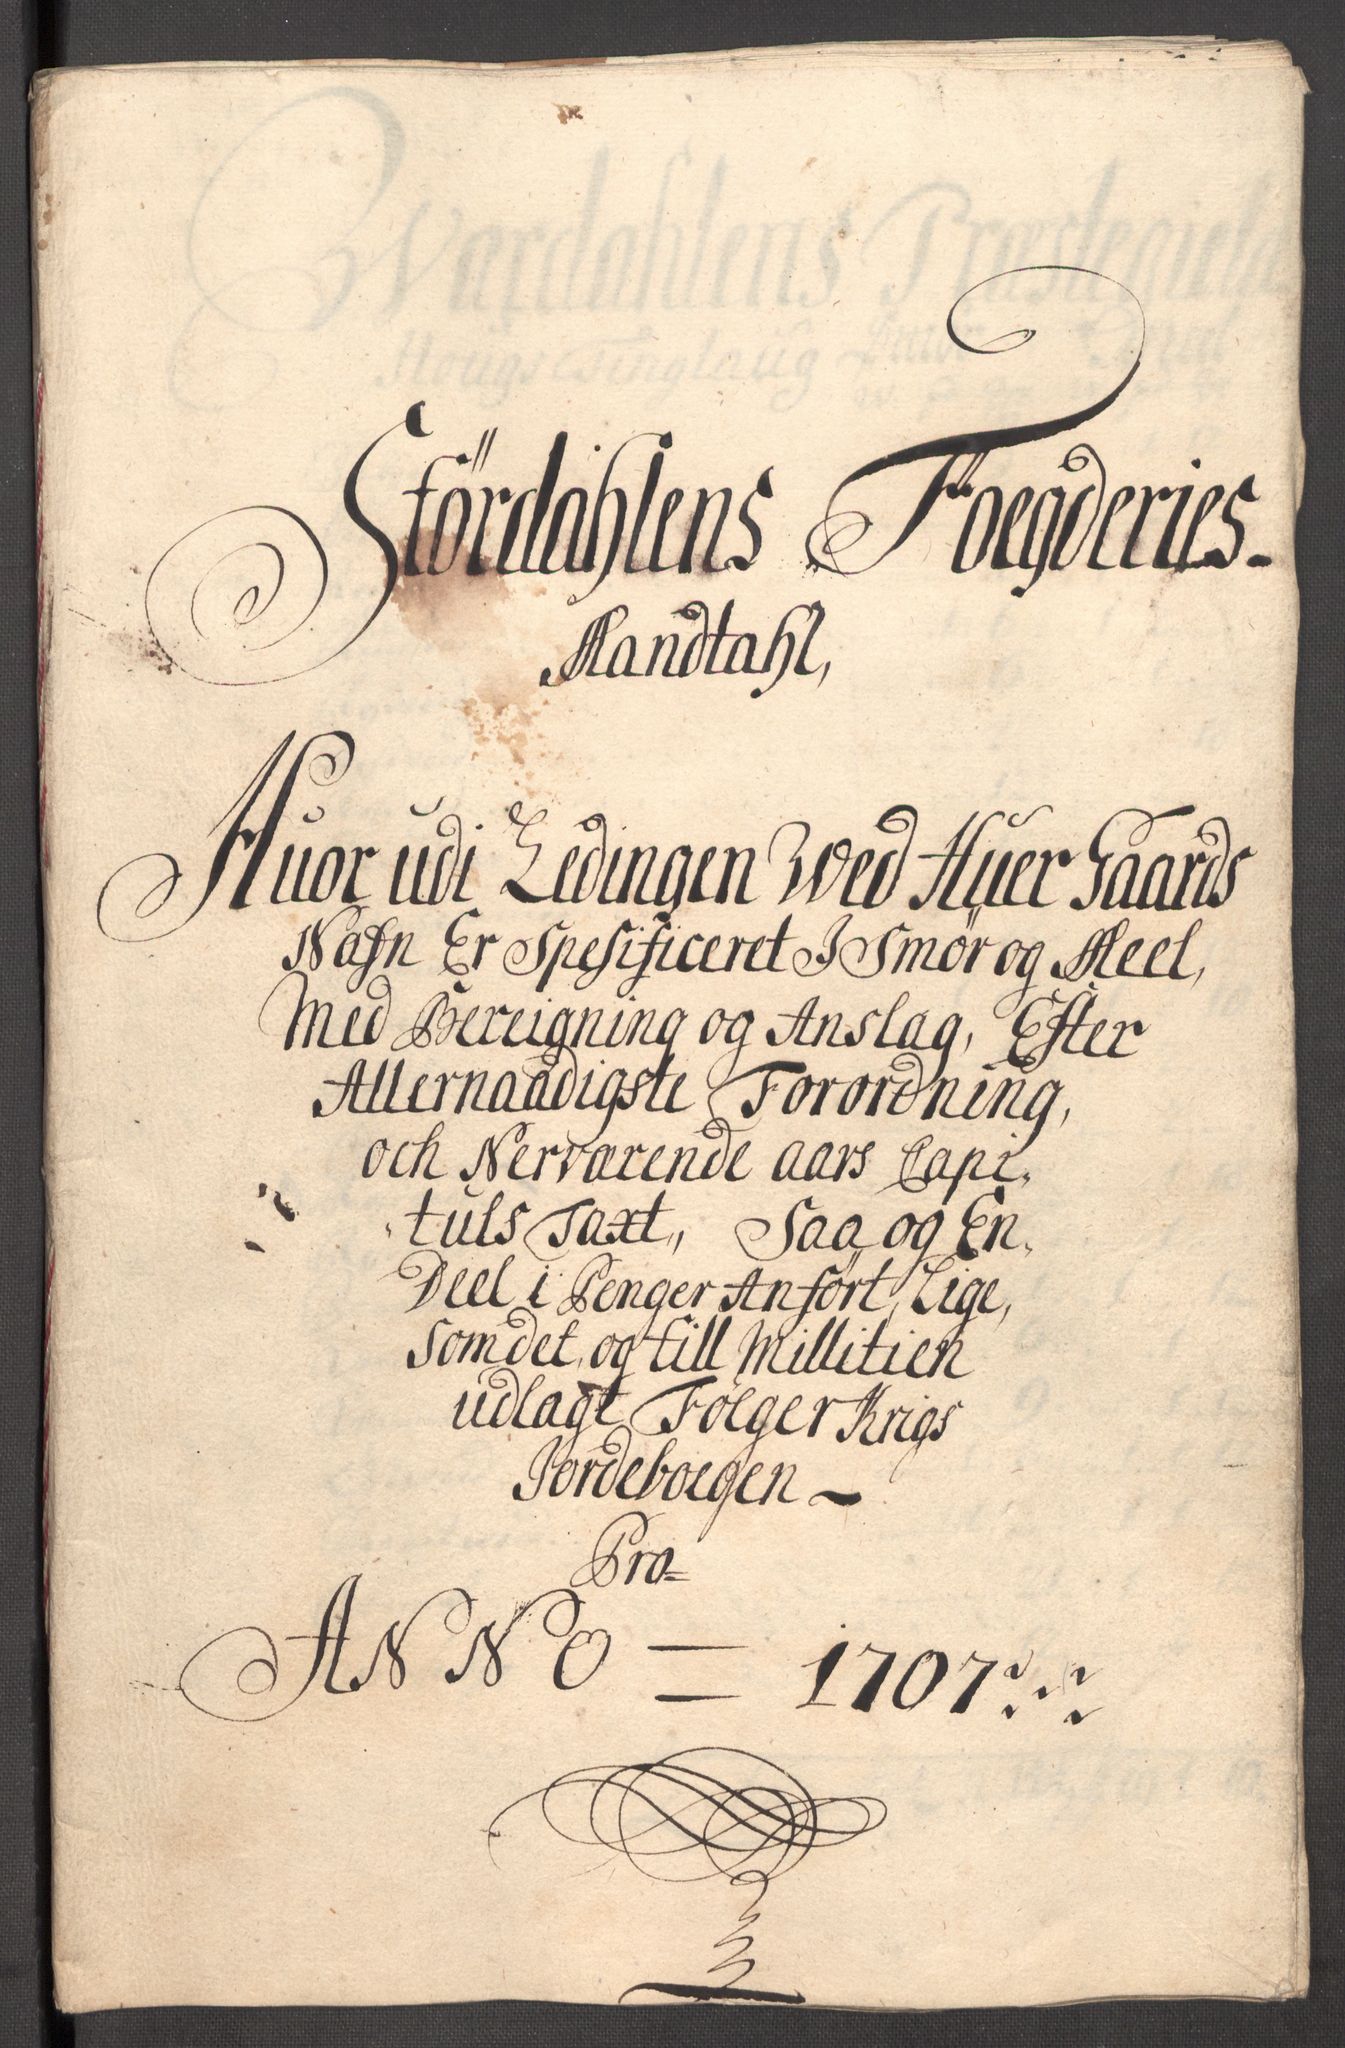 Stördahlens Foegderies-
Mandtahl,
Huor udi Ledingen Wed Huer Gaards
Nafn Er Spesificeret I Smör og Meel,
Med Bereigning og Anslag, Efter
Allernaadigste Forordning,
och Nerværende aars Capi-
tuls Taxt, Saa og En
Deel i Penger Anfört, Lige,
som det og till Millitien
udlagt Fölger Krigs
Jordeboegen
Pro=
ANNO = 1707